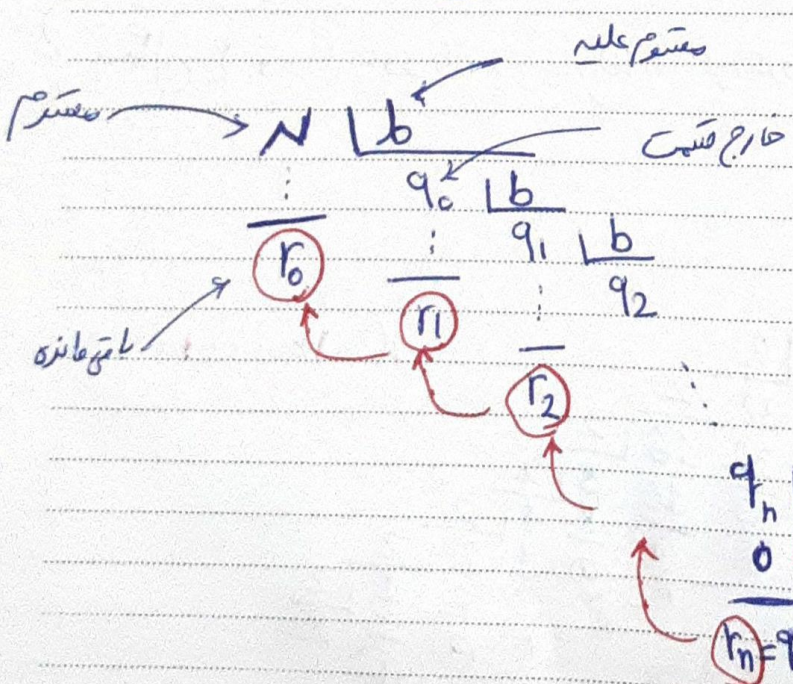 مقسوم علیه
مقسوم N b
خارج قسمت
q₀ b
r₀ q₁ b
r₁ q₂
باقی مانده
r₂
qₙ
0
rₙ = q